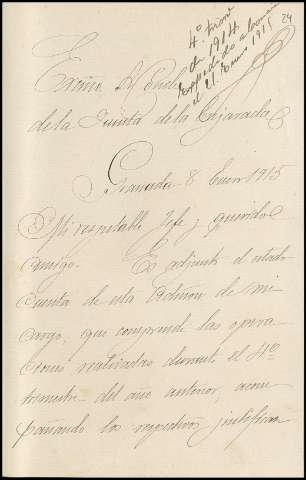 24
4º trim
de 1914
Expedido abonaré
el 21 Enero 1915
Excmo. Sr Duque
de la Quinta de la Enjarada
Granada 8 Enero 1915
Mi respetable Jefe y querido
amigo. Es adjunto el estado
cuenta de esta Admon de mi
cargo, que comprende las opera
ciones realizadas durante el 4º
trimestre del año anterior, acom
pañando los respectivos justifican